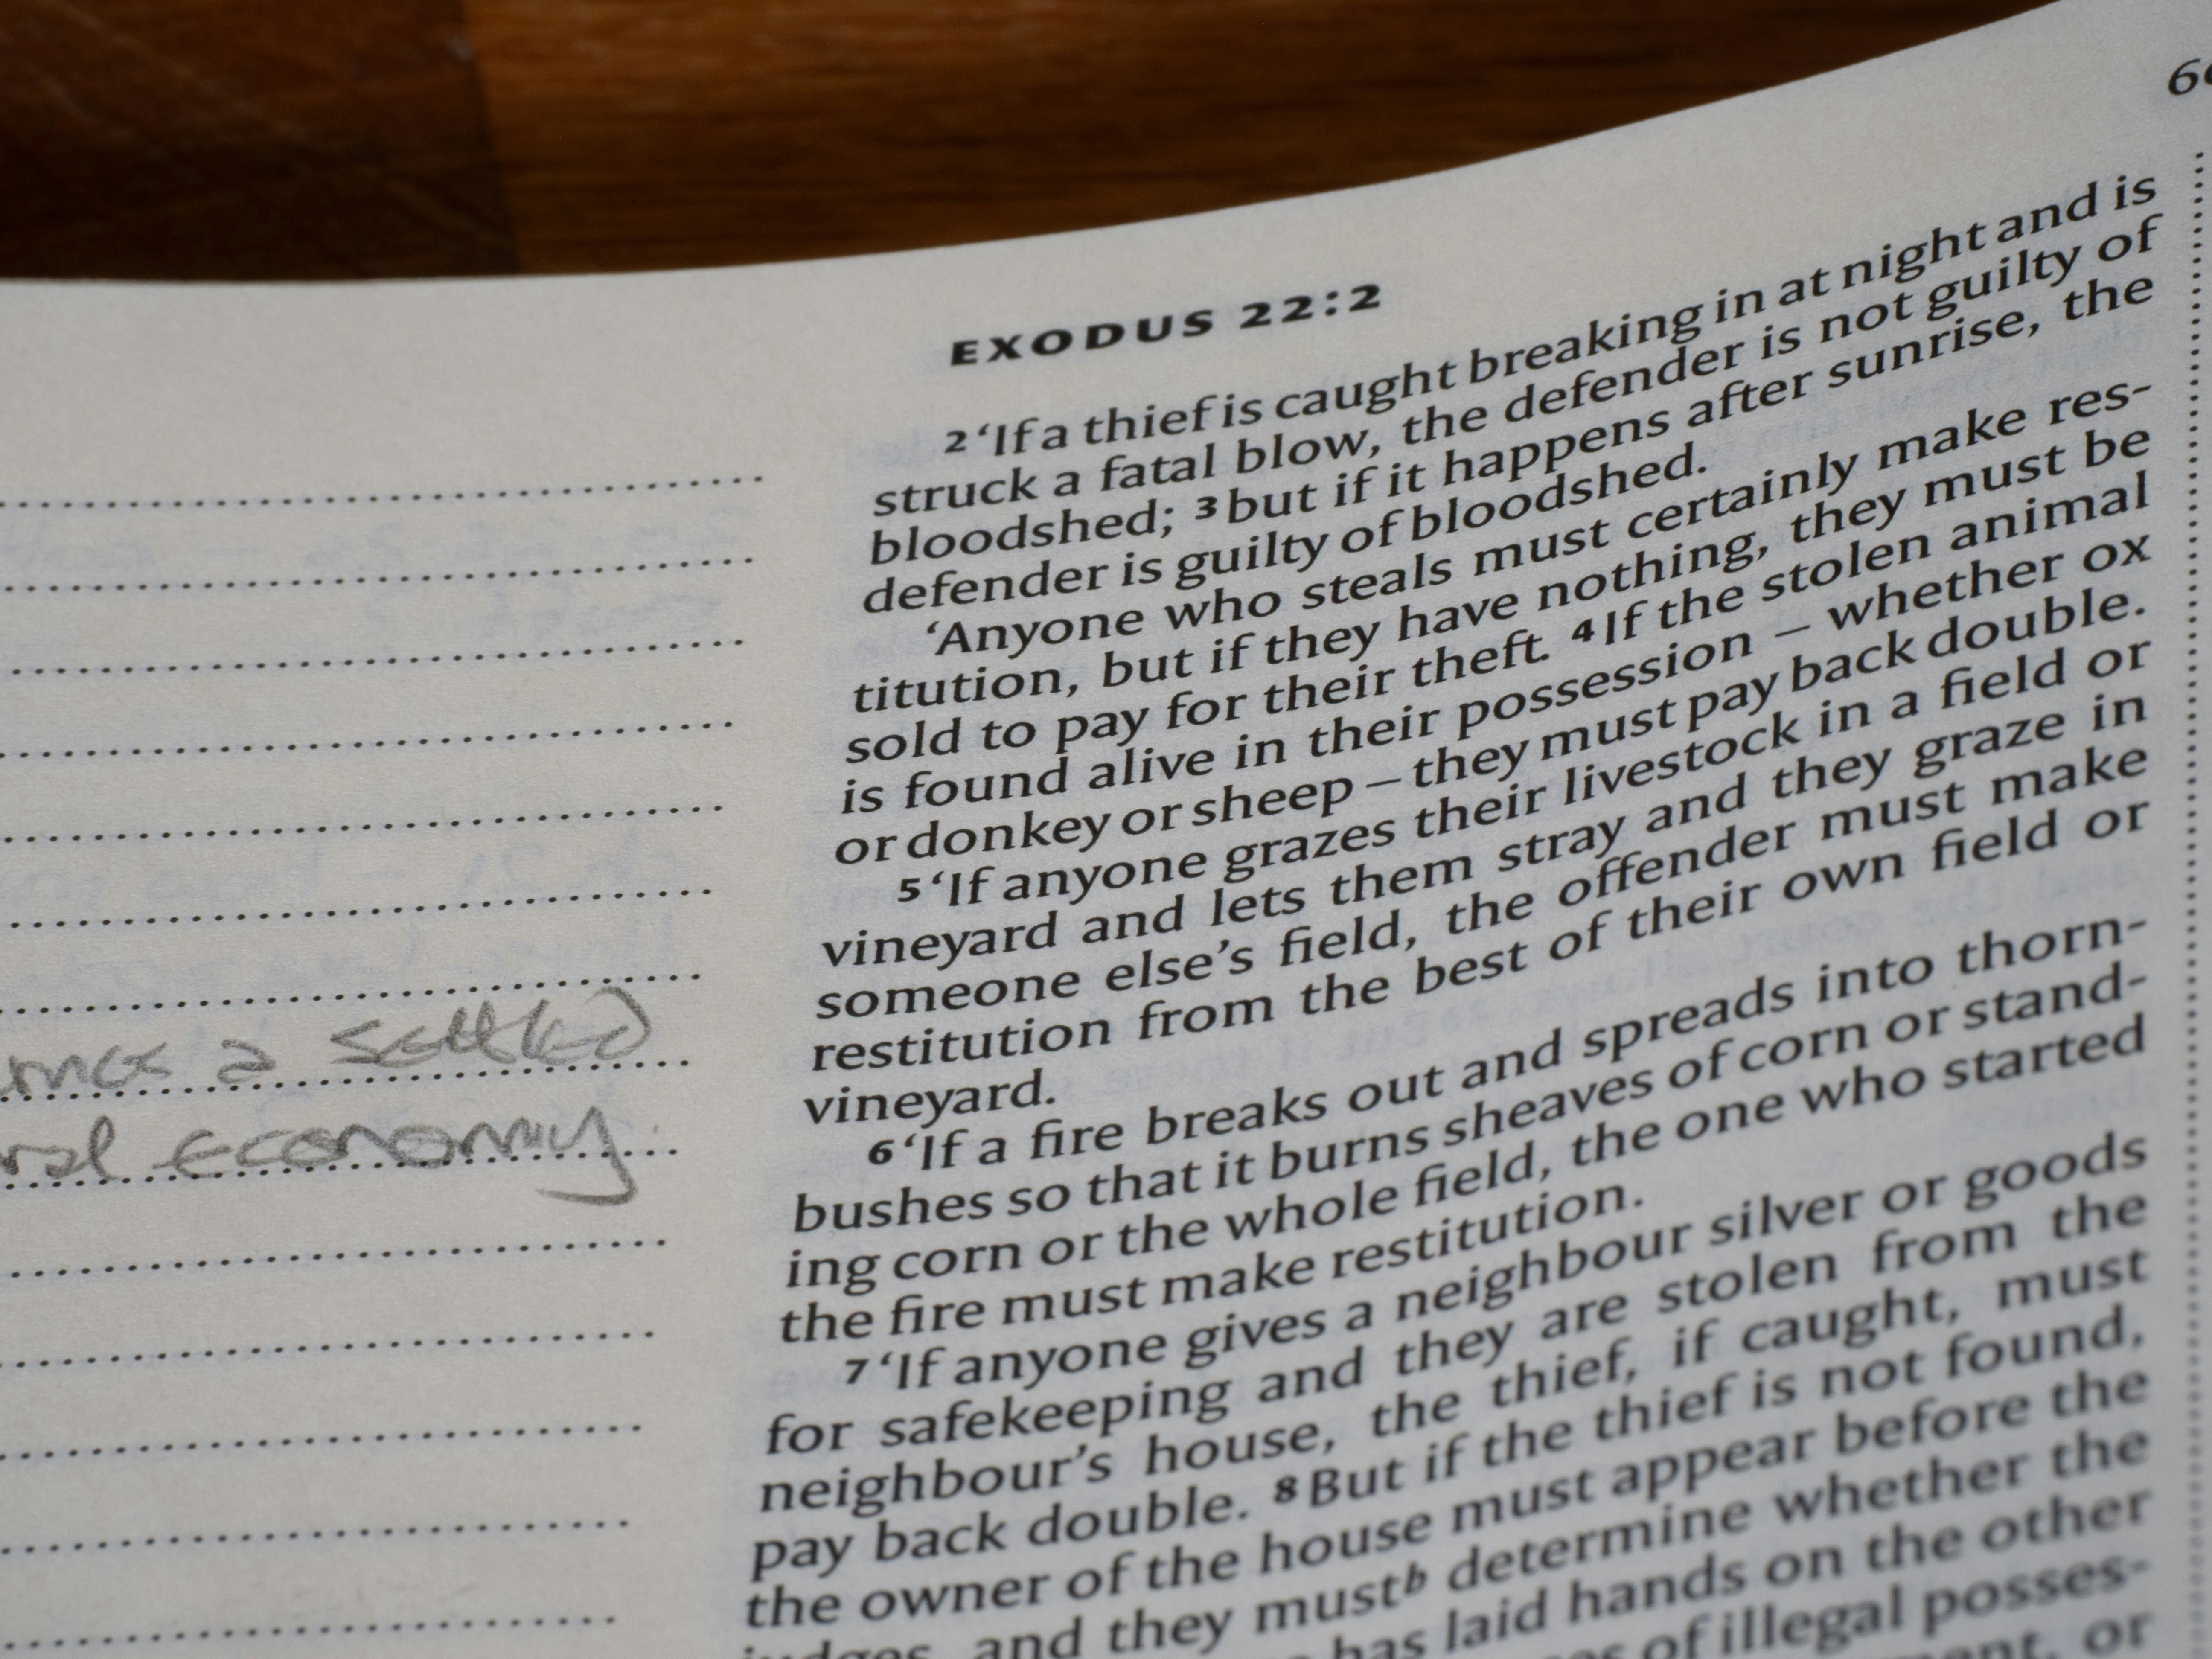 60
EXODUS 22:2
2 ‘If a thief is caught breaking in at night and is
struck a fatal blow, the defender is not guilty of
bloodshed; 3 but if it happens after sunrise, the
defender is guilty of bloodshed.
‘Anyone who steals must certainly make res-
titution, but if they have nothing, they must be
sold to pay for their theft. 4 If the stolen animal
is found alive in their possession – whether ox
or donkey or sheep – they must pay back double.
5 ‘If anyone grazes their livestock in a field or
vineyard and lets them stray and they graze in
someone else’s field, the offender must make
restitution from the best of their own field or
vineyard.
6 ‘If a fire breaks out and spreads into thorn-
bushes so that it burns sheaves of corn or stand-
ing corn or the whole field, the one who started
the fire must make restitution.
7 ‘If anyone gives a neighbour silver or goods
for safekeeping and they are stolen from the
neighbour’s house, the thief, if caught, must
pay back double. 8 But if the thief is not found,
the owner of the house must appear before the
judges, and they must b determine whether the
has laid hands on the other
of illegal posses-
or
a settled
economy